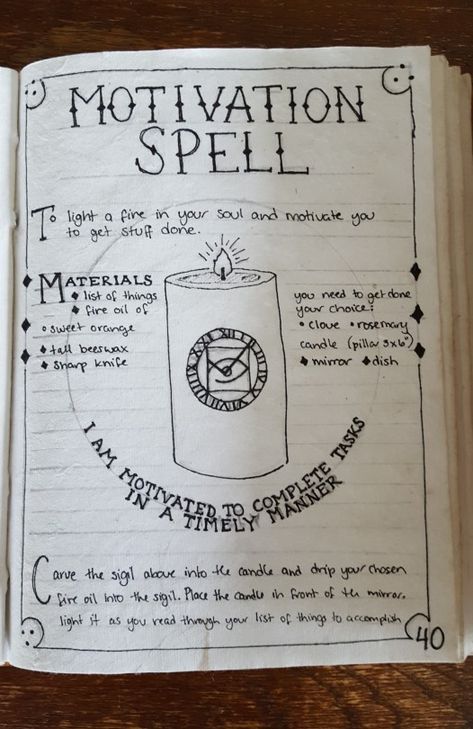 MOTIVATION
SPELL
To light a fire in your soul and motivate you
to get stuff done.
MATERIALS
list of things you need to get done
fire oil of your choice:
sweet orange • clove • rosemary
tall beeswax candle (pillar 3x6")
sharp knife mirror dish
XII I II III IV V VI VII VIII IX X XI
I AM MOTIVATED TO COMPLETE TASKS
IN A TIMELY MANNER
Carve the sigil above into the candle and drip your chosen
fire oil into the sigil. Place the candle in front of the mirror.
light it as you read through your list of things to accomplish
40